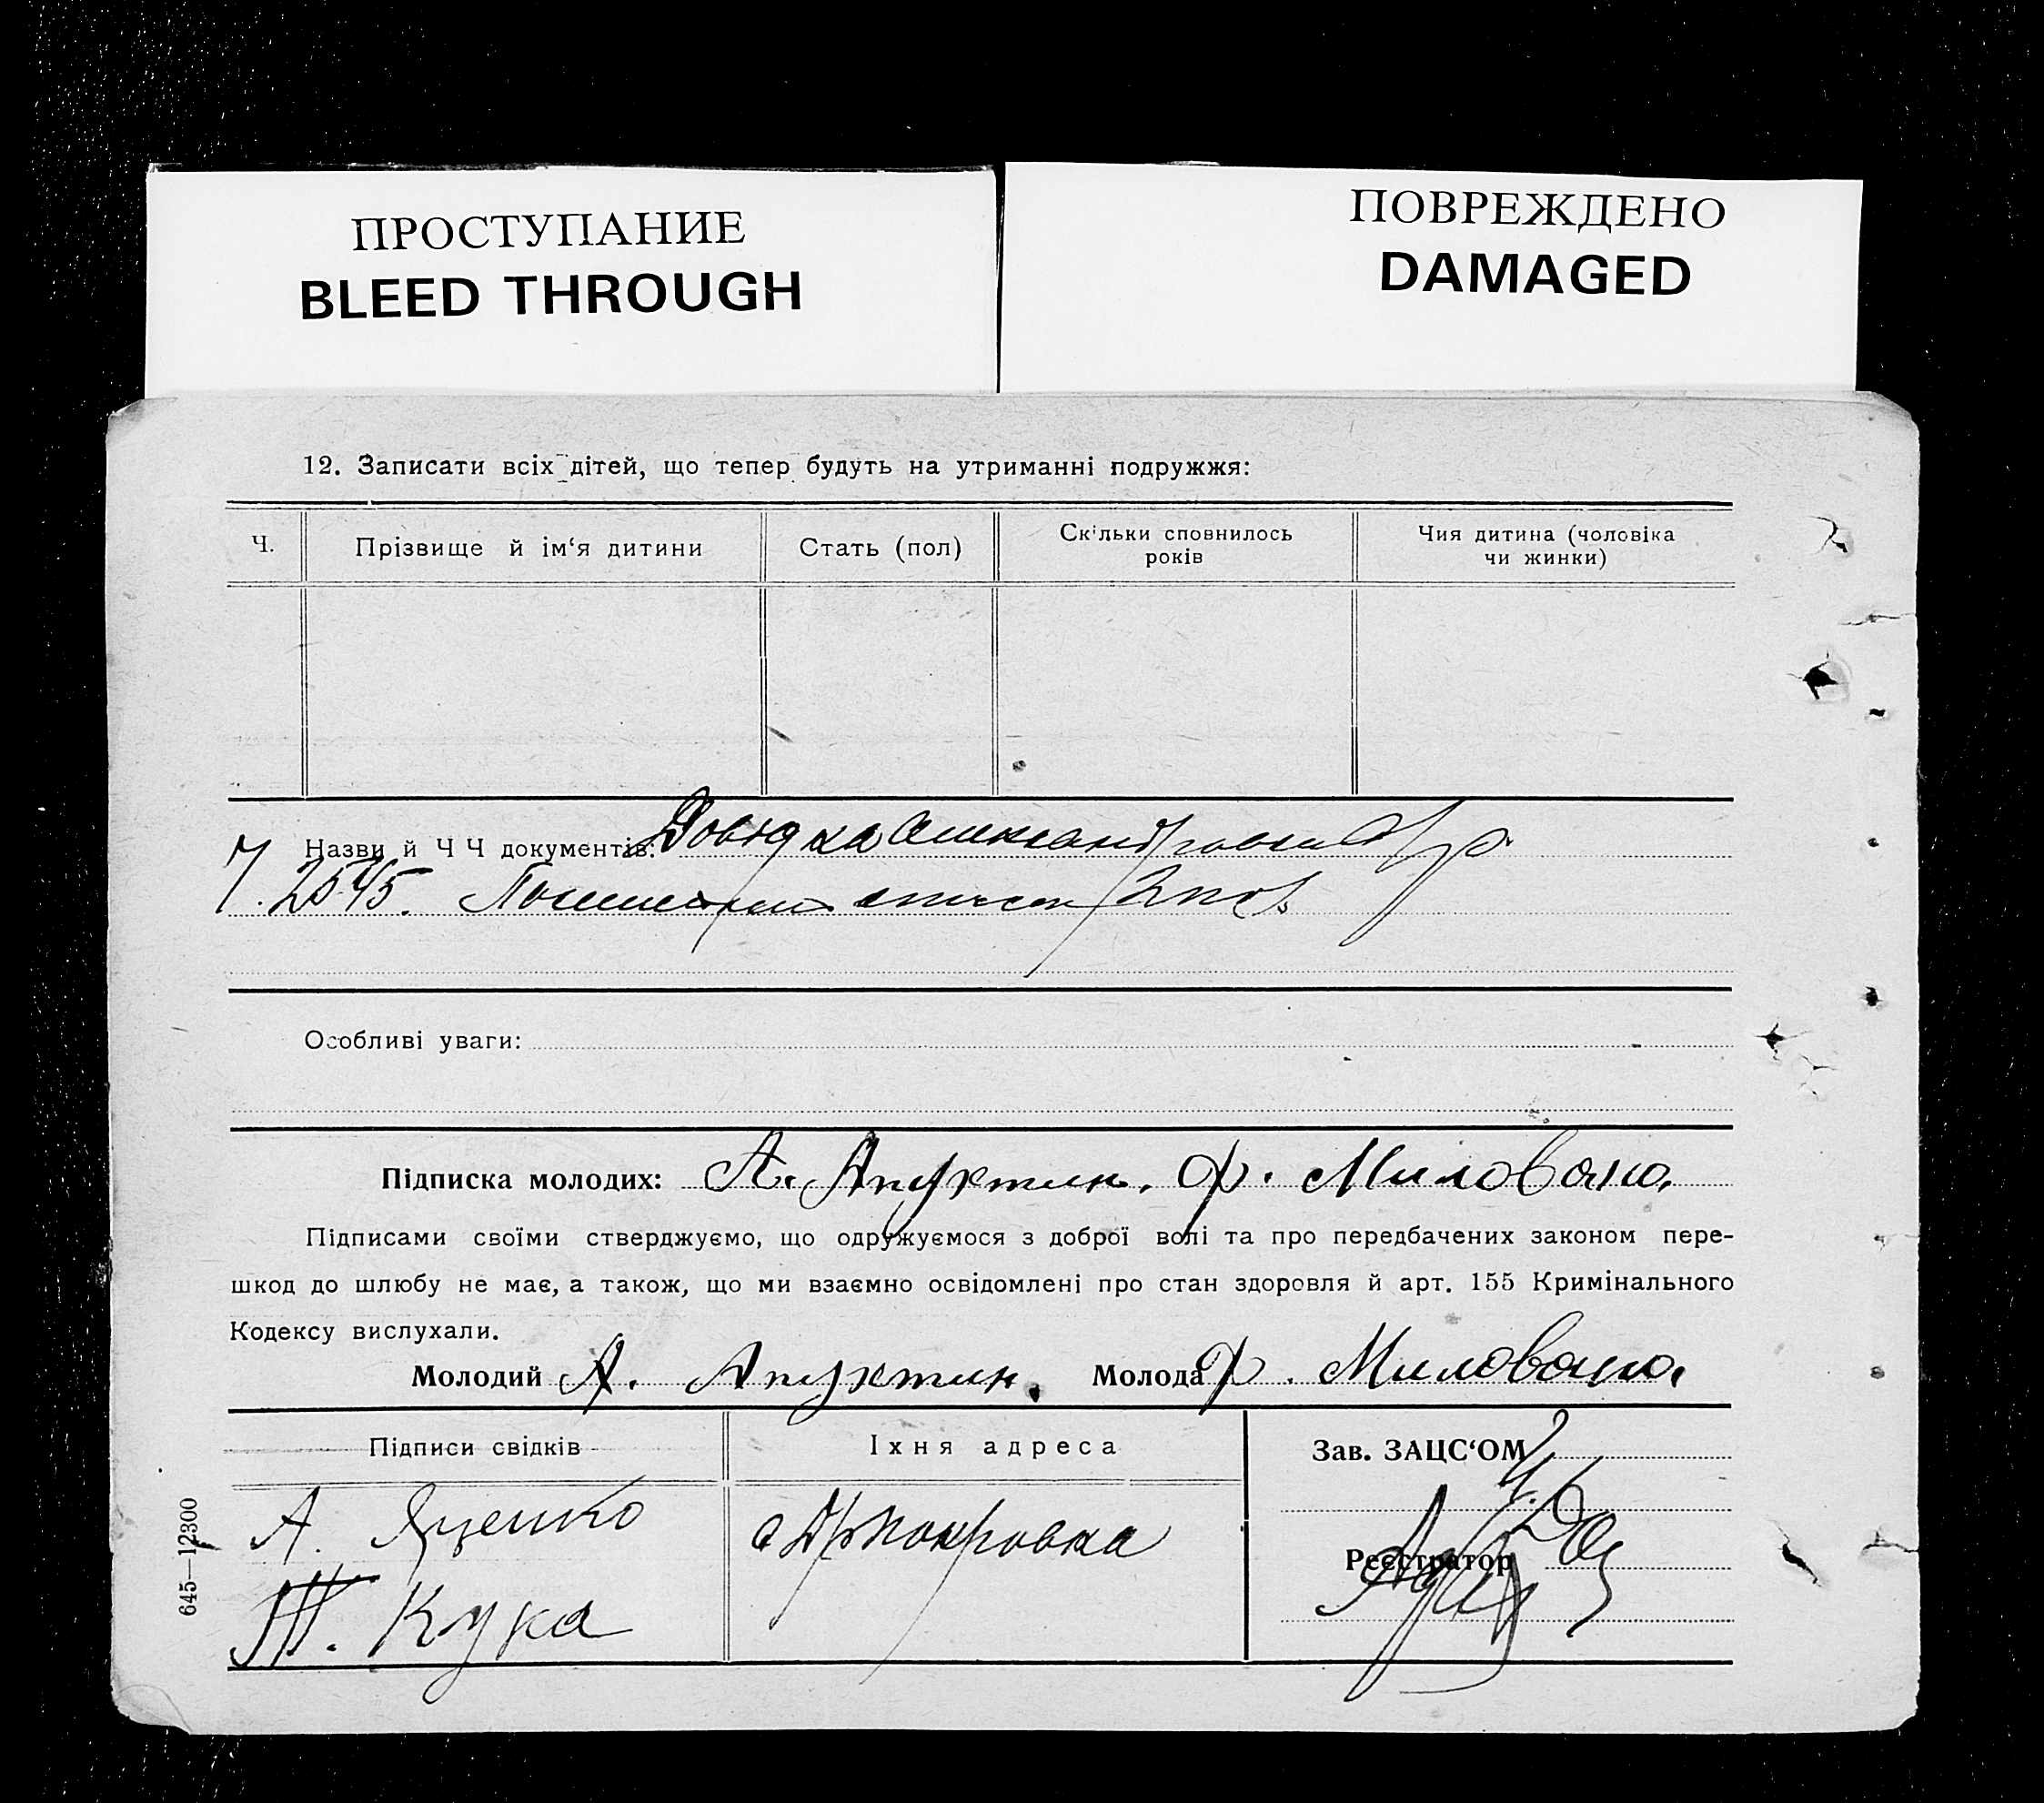 ПРОСТУПАНИЕ
BLEED THROUGH
ПОВРЕЖДЕНО
DAMAGED
12. Записати всіх дітей, що тепер будуть на утриманні подружжя:
Ч.
Прізвище й ім‘я дитини
Стать (пол)
Скільки сповнилось
років
Чия дитина (чоловіка
чи жинки)
Назви й Ч Ч документів: Довідка
Ч. 2545.
Особливі уваги:
Підписка молодих: А. Апухтин. Ф. Милована.
Підписами своїми стверджуємо, що одружуємося з доброї волі та про передбачених законом пере-
шкод до шлюбу не має, а також, що ми взаємно освідомлені про стан здоровля й арт. 155 Кримінального
Кодексу вислухали.
Молодий А. Апухтин. Молода Ф. Милована.
Підписи свідків
Їхня адреса
Зав. ЗАЦС‘ОМ
А. Яценко
Т. Кука
Реєстратор
645—12300